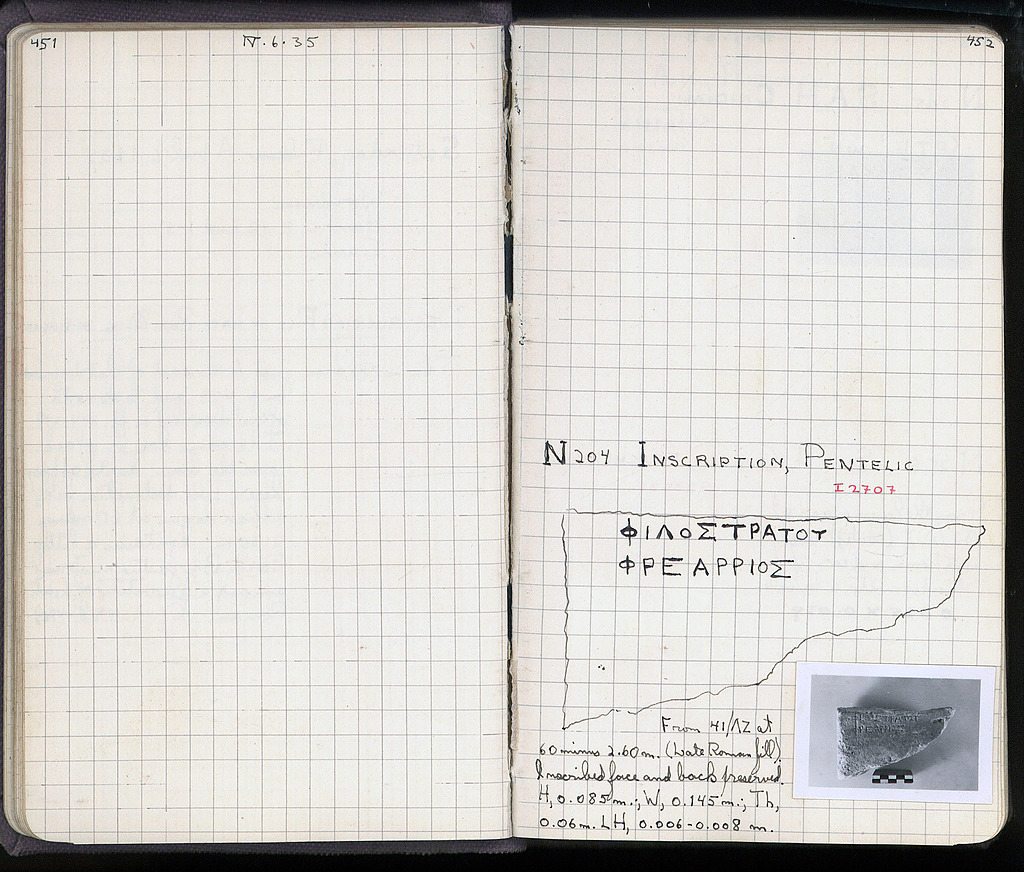 451
N.6.35
452
N 204 INSCRIPTION, PENTELIC
I 2707
ΦΙΛΟΣΤΡΑΤΟΥ
ΦΡΕΑΡΡΙΟΣ
From 41/ΛΖ at
60 minus 2.60 m. (Late Roman fill).
Inscribed face and back preserved.
H, 0.085 m.; W, 0.145 m.; Th,
0.06 m. LH, 0.006-0.008 m.